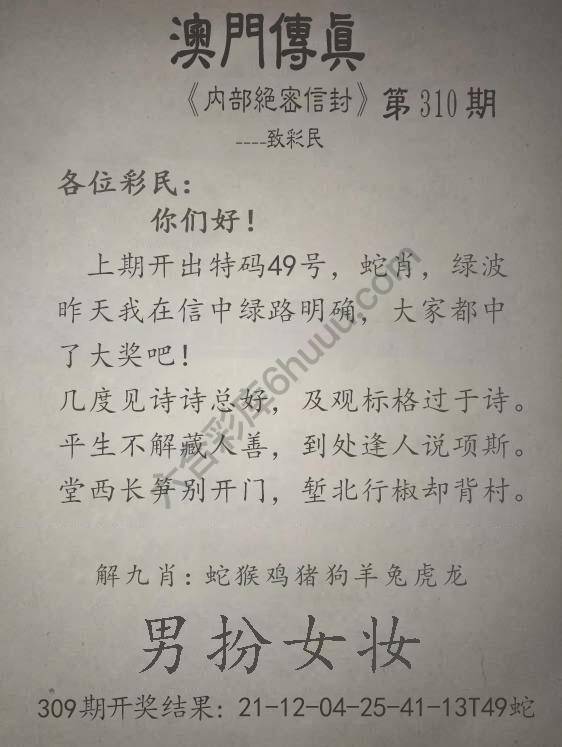 澳門傳眞
《内部絕密信封》第310期
----致彩民
各位彩民：
你们好！
上期开出特码49号，蛇肖，绿波
昨天我在信中绿路明确，大家都中
了大奖吧！
几度见诗诗总好，及观标格过于诗。
平生不解藏人善，到处逢人说项斯。
堂西长笋别开门，堑北行椒却背村。
六合彩库6huuu.com
解九肖：蛇猴鸡猪狗羊兔虎龙
男扮女妆
309期开奖结果：21-12-04-25-41-13T49蛇